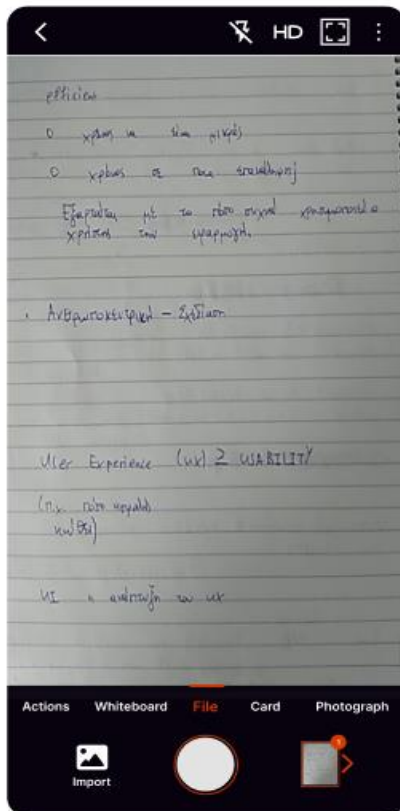 HD
efficien
Ο χρόνος να είναι μικρός
Ο χρόνος σε ποια επανάληψη
Εξαρτάται με το πόσο συχνά χρησιμοποιεί ο
χρήστης την εφαρμογή.
Ανθρωποκεντρική – Σχεδίαση
User Experience (UX) ≥ USABILITY
(π.χ. πόσο
UI η ανάπτυξη του UX
Actions Whiteboard File Card Photograph
1
Import